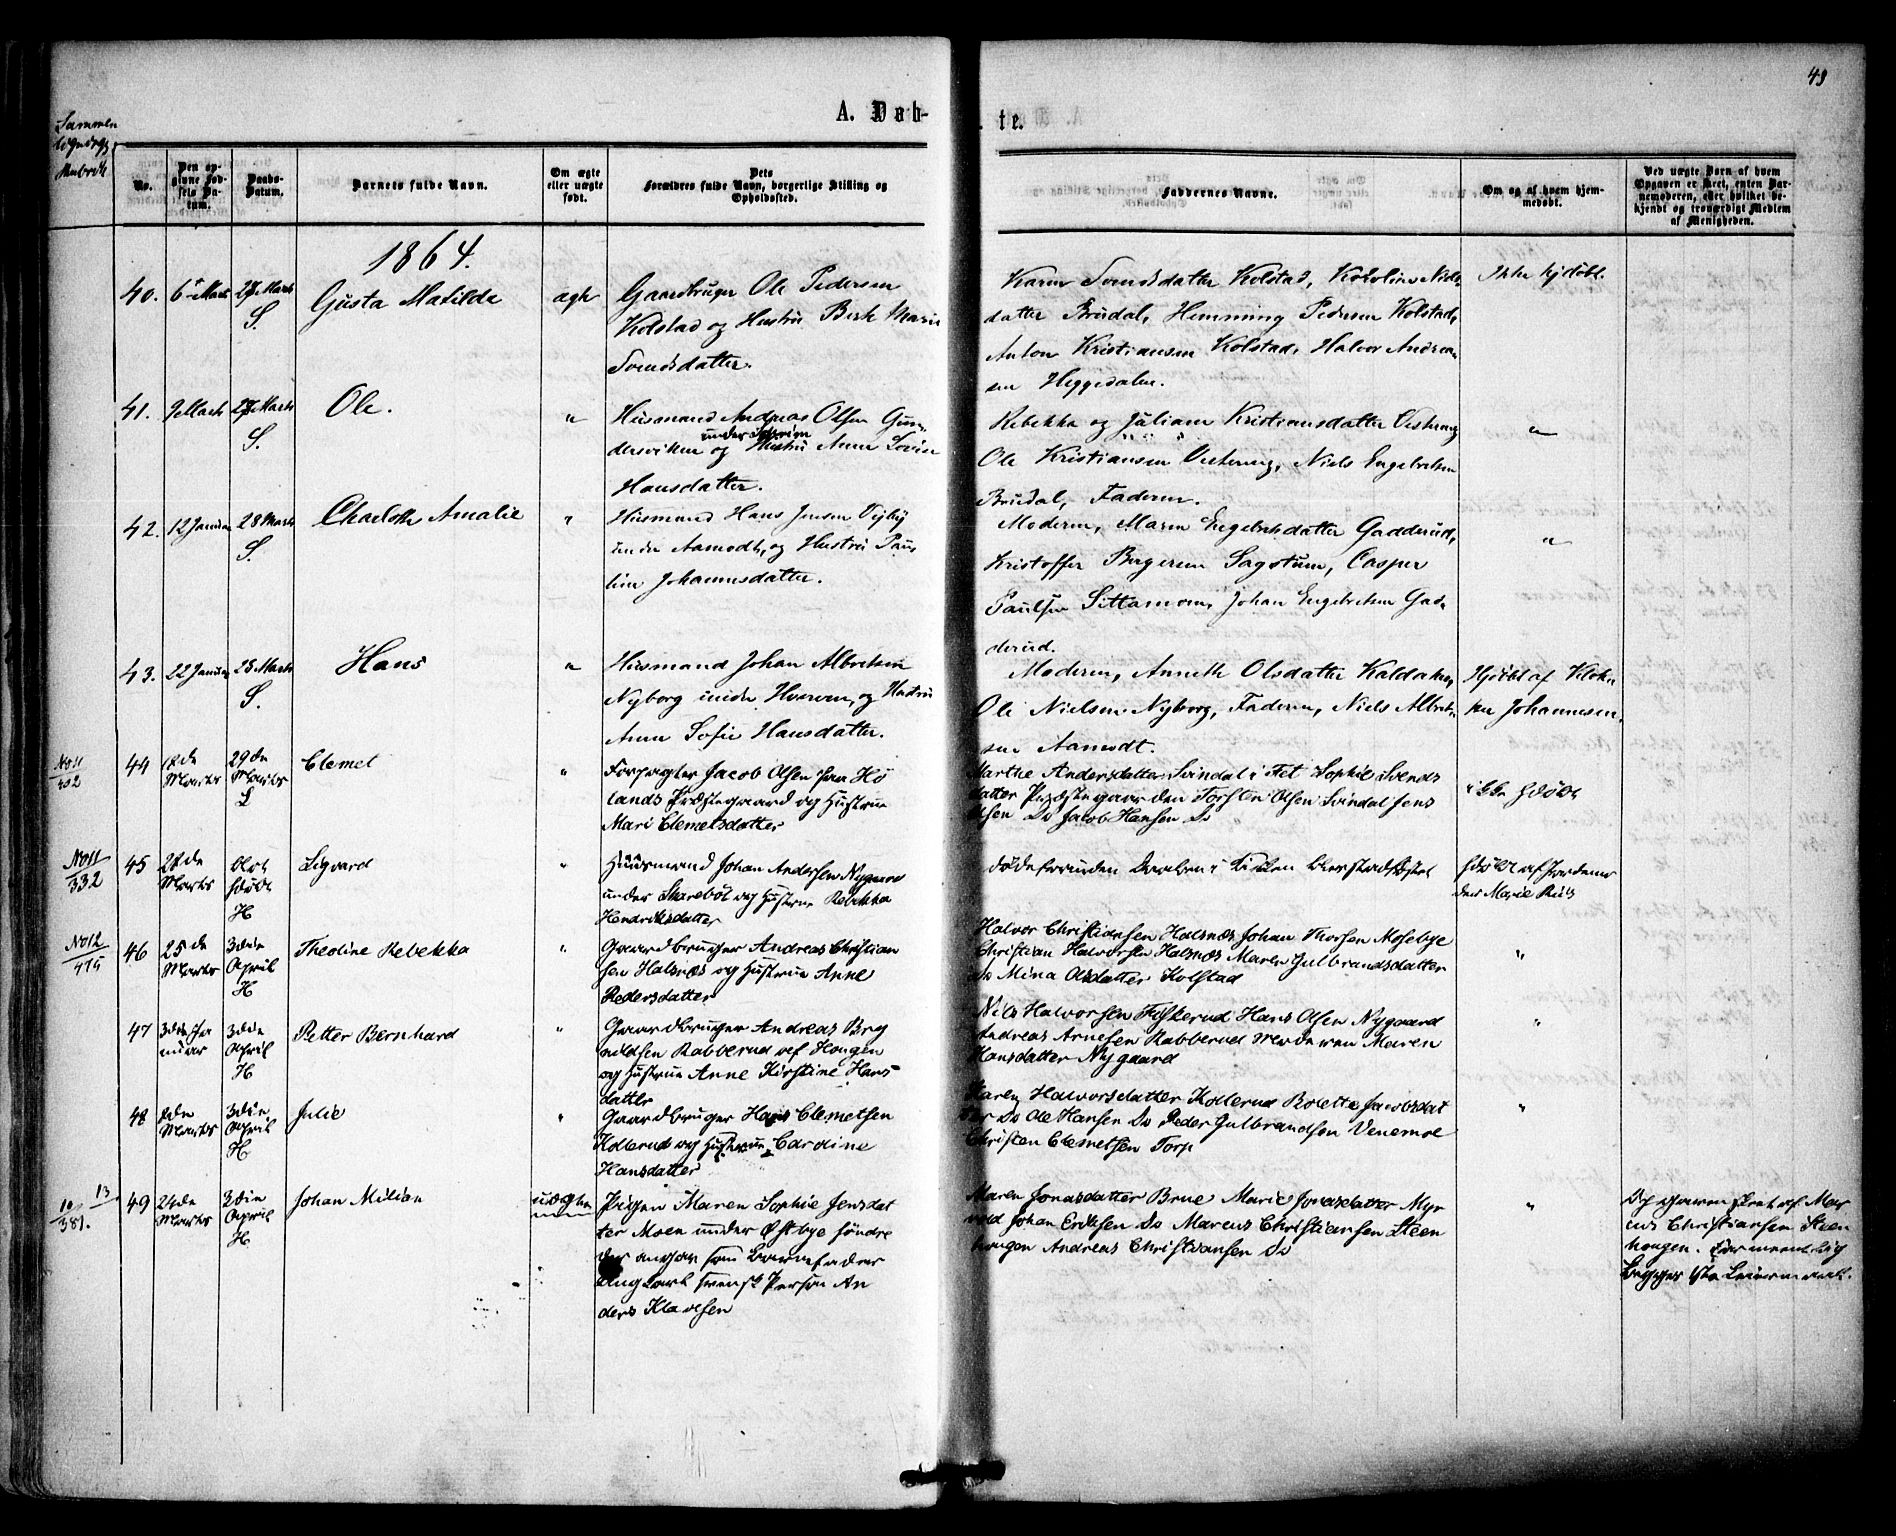 49
A. Døb-
te.
Sammen
Rubrik
No.
Den op-
givne Fød-
sels Da-
tum.
Daabs-
Datum.
Barnets fulde Navn.
Om ægte
eller uægte
født.
Dets
Forældres fulde Navn, borgerlige Stilling og
Opholdssted.
Faddernes Navne.
Om og af hvem hjem-
medøbt.
Ved uægte Børn af hvem
Opgaven er sket, enten Bar-
nemoderen, eller hvilket be-
kjendt og troværdigt Medlem
af Menigheden.
1864.
40. 6te Marts 28 Marts Gusta Matilde ægte Gaardbruger Ole Pedersen
S. Kolstad og Hustru Berte Marie
Svendsdatter.
Karen Svendsdatter Kolstad, Karoline Niels-
datter Brudal, Hemming Pedersen Kolstad,
Anton Kristiansen Kolstad, Halvor Andrea-
sen Heggedalen.
Ikke hjdøbt.
41. 9 Marts 28 Marts Ole. " Husmand Andreas Olsen Gun-
under
dersviken og Hustru Anne Lovise
S. Hansdatter.
Rebekka og Juliane Kristiansdatter Vestreng
Ole Kristiansen Vestreng, Niels Engebretsen
Brudal, Faderen.
"
42. 12 Januar 28 Marts Charlotte Amalie " Husmand Hans Jensen Vejby
S. under Aamodt, og Hustru Pau-
line Johannesdatter.
Moderen, Maren Engebretsdatter Gadderud,
Kristoffer Bergersen Sagstuen, Casper
Paulsen Sittamoen, Johan Engebretsen Gad-
derud.
"
43. 22 Januar 28 Marts Hans " Husmand Johan Albretsen
S. Nyborg under Hverven, og Hustru
Anne Sofie Hansdatter.
Moderen, Annette Olsdatter Kaldaker,
Ole Nielsen Nyborg, Faderen, Niels Albret-
sen Aamodt.
Hjdøbt af Klok-
ker Johannesen.
No 11
402
44 18de
Marts 29de
Marts
L Clemet " Forpagter Jacob Olsen paa Hø
lands Præstegaard og Hustrue
Mari Clemetsdatter
Marthe Andersdatter Svindal i Fet Sophie Svends
datter Præstegaarden Torsten Olsen Svindal Jens
Olsen Do Jacob Hansen Do
ikke hdøbt
No 11
332
45 22de
Marts blot
hdøbt
H Sigvard " Huusmand Johan Andersen Nygaard
under Skarebøl og Hustrue Rebekka
Hendriksdatter
døde forinden Daaben i Kirken
hdøbt af Jordemo
der Marie Riis
No 12
415
46 25de
Marts 3die
April
H Theoline Rebekka " Gaardbruger Andreas Christian
sen Halsnæs og Hustrue Anne
Pedersdatter
Halvor Christiansen Halsnæs Johan Thorsen Mosebye
Christian Halvorsen Halsnæs Maren Gulbrandsdatter
Do Mina Olsdatter Kolstad
"
47 3die Ja
nuar 3die
April
H Petter Bernhard " Gaardbruger Andreas Bryn
nildsen Rabberud vef Hougen
og Hustrue Anne Kirstine Hans
datter
Niels Halvorsen Fiskerud Hans Olsen Nygaard
Andreas Arnesen Rabberud Moderen Maren
Hansdatter Nygaard
"
48 2den
Marts 3die
April
H Julie " Gaardbruger Hans Clemetsen
Kollerud og Hustrue Caroline
Hansdatter
Karen Halvorsdatter Kollerud Bolette Jacobsdat
ter Do Ole Hansen Do Peder Gulbrandsen Venemoe
Christen Clemetsen Torp
"
10 13
381.
49 24de
Marts 3die
April
H Johan Milian uægte Pigen Maren Sophie Jensdat
ter Moen under Østbye søndre
der angav som Barnefader
Ungkarl svensk Person An
ders Klavesen
Maren Jonasdatter Brue Marie Jonasdatter Myr
vold Johan Eriksen Do Marcus Christiansen Steen
hougen Andreas Christiansen Do
"
Opgaven skeet af Mar
cus Christiansen Steen
hougen. Formeentlig
begges 1ste Leiermaal.